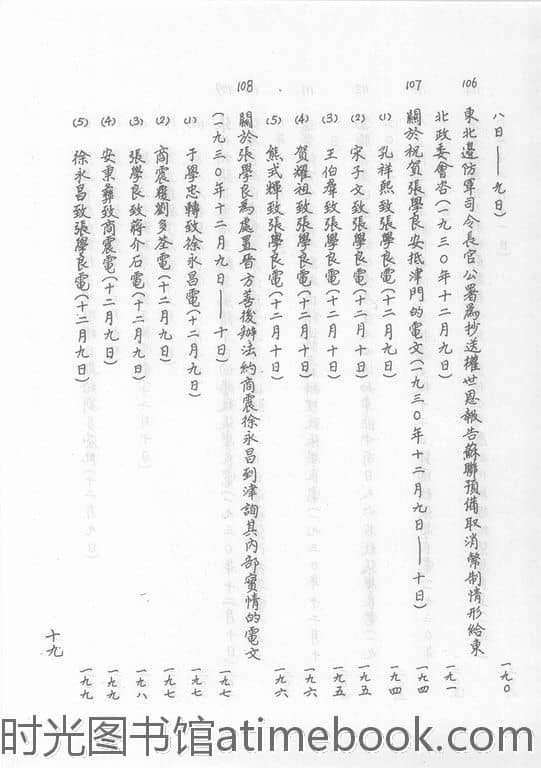 八日——九日）
106 東北邊防軍司令長官公署爲抄送權世恩報告蘇聯預備取消幣制情形給東 一九〇
北政委會咨（一九三〇年十二月九日） 一九一
107 關於祝賀張學良安抵津門的電文（一九三〇年十二月九日——十日） 一九四
(1) 孔祥熙致張學良電（十二月九日） 一九四
(2) 宋子文致張學良電（十二月十日） 一九五
(3) 王伯羣致張學良電（十二月十日） 一九五
(4) 賀耀祖致張學良電（十二月十日） 一九六
(5) 熊式輝致張學良電（十二月十日） 一九六
108 關於張學良為處置晉方善後辦法約商震徐永昌到津詢其內部實情的電文
（一九三〇年十二月九日——十日） 一九七
(1) 于學忠轉致徐永昌電（十二月九日） 一九七
(2) 商震覆劉多荃電（十二月九日） 一九七
(3) 張學良致蔣介石電（十二月九日） 一九八
(4) 安東彝致商震電（十二月九日） 一九九
(5) 徐永昌致張學良電（十二月九日） 一九九
十九
时光图书馆atimebook.com